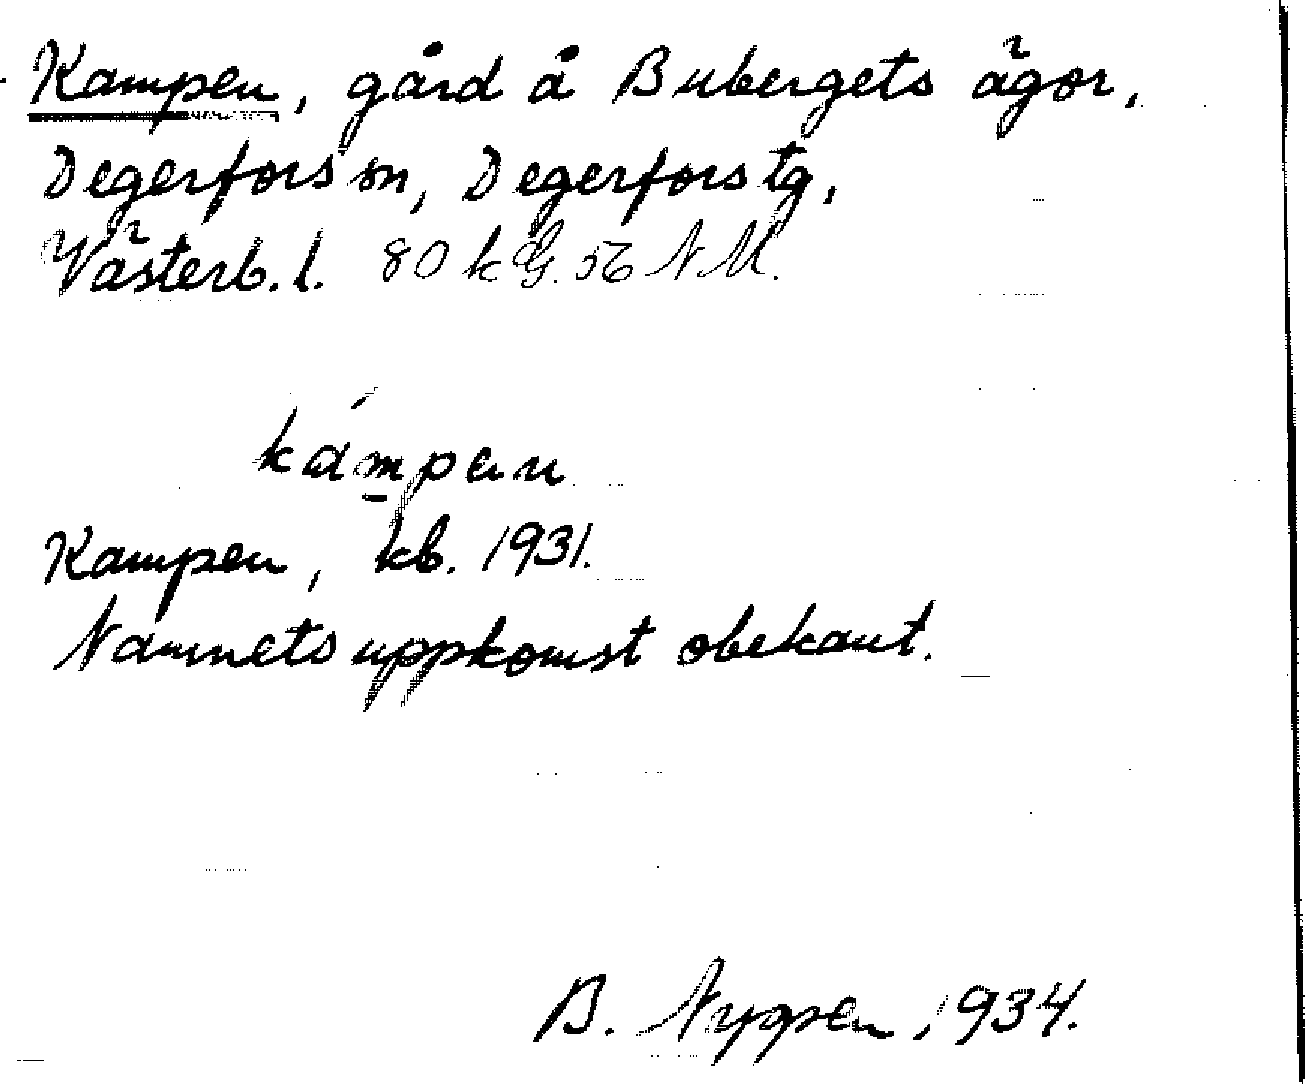 Kampen, gård å Bubergets ägor,
Degerfors sn, Degerfors tg,
Västerb. l. 80 k G. 56 N M.
kámpan
Kampen, kb. 1931.
Namnets uppkomst obekant.
B. Nygren, 1934.